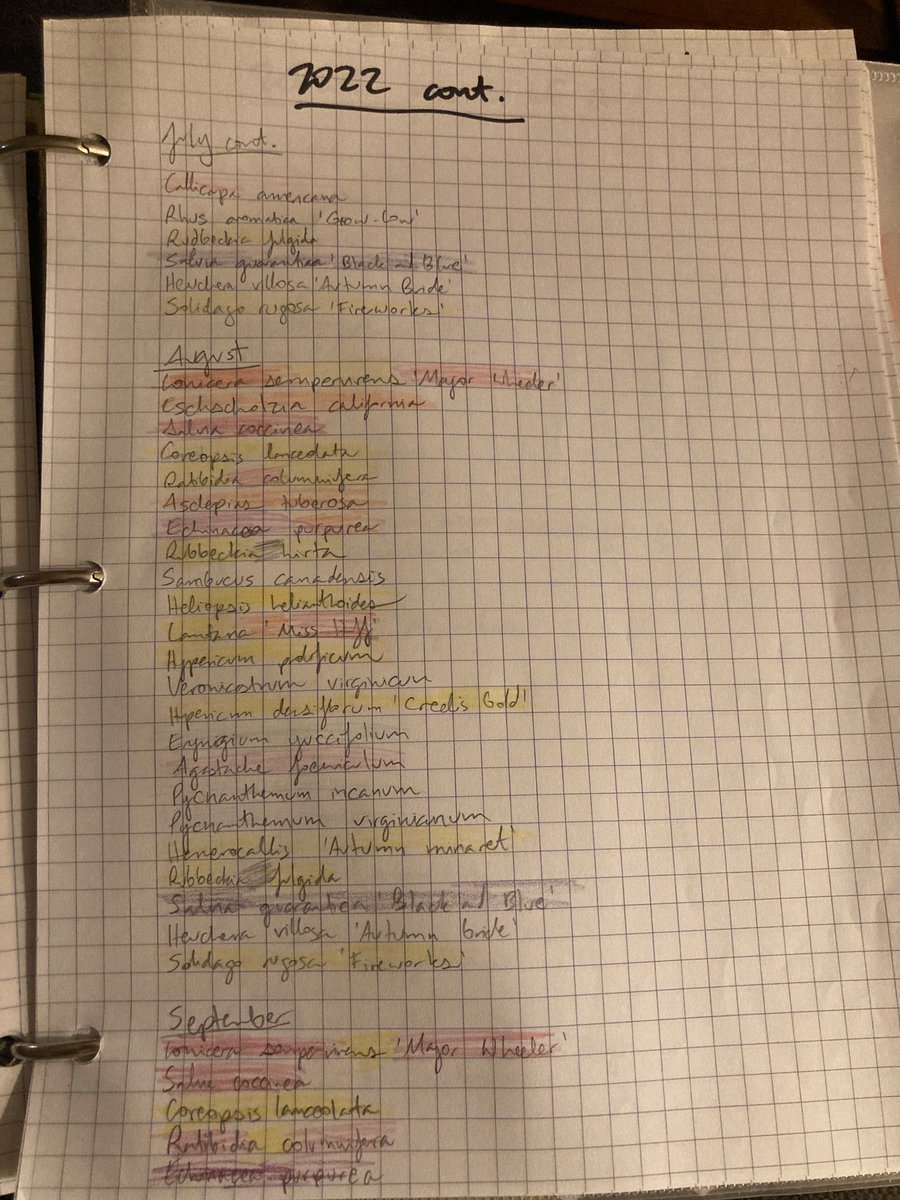 2022 cont.
July cont.
Callicapa americana
Rhus aromatica 'Grow-Low'
Rudbeckia fulgida
Salvia guarantica 'Black and Blue'
Heuchera villosa 'Autumn Bride'
Solidago rugosa 'Fireworks'
August
Lonicera sempervirens 'Major Wheeler'
Eschscholzia california
Salvia coccinea
Coreopsis lanceolata
Ratibidia columnifera
Asclepias tuberosa
Echinacea purpurea
Rubbeckia hirta
Sambucus canadensis
Heliopsis helianthoides
Lantana 'Miss Huff'
Hypericum prolificum
Veronicastrum virginicum
Hypericum densiflorum 'Creel's Gold'
Eryngium yuccifolium
Agastache foeniculum
Pycnanthemum incanum
Pycnanthemum virginianum
Hemerocallis 'Autumn minaret'
Rubbeckia fulgida
Salvia guarantica 'Black and Blue'
Heuchera villosa 'Autumn bride'
Solidago rugosa 'Fireworks'
September
Lonicera sempervirens 'Major Wheeler'
Salvia coccinea
Coreopsis lanceolata
Ratibidia columnifera
Echinacea purpurea